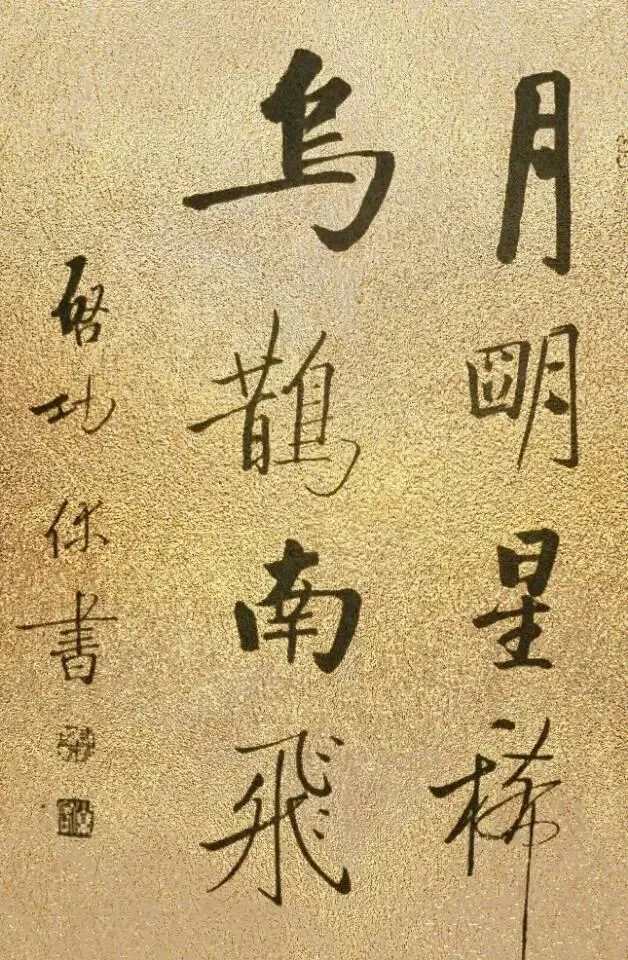 月明星稀
烏鵲南飛
啓功 書